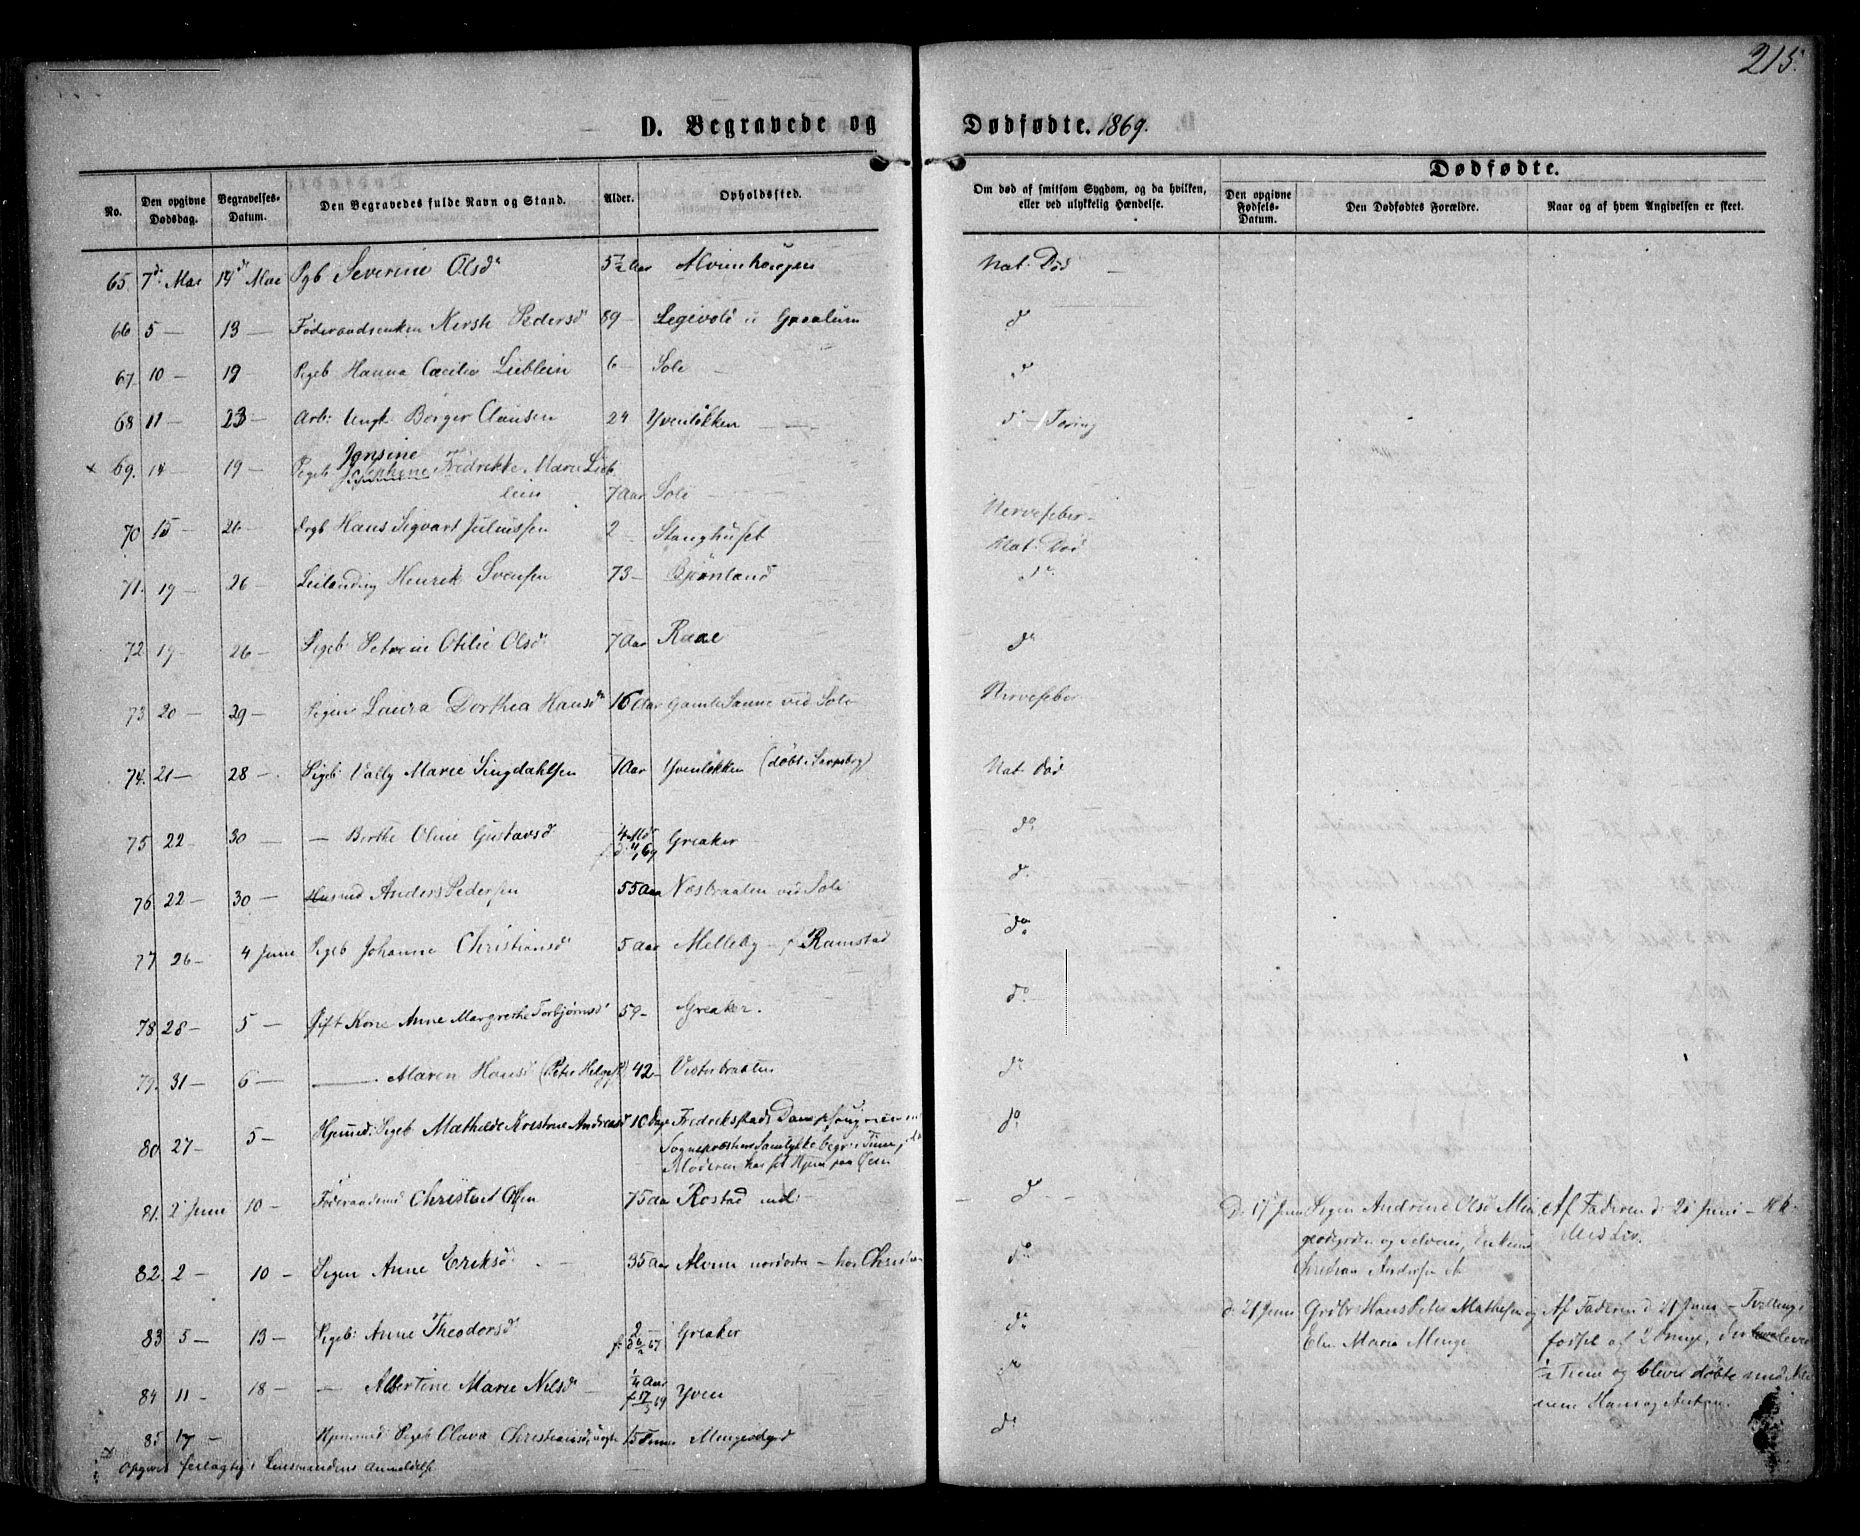 215.
D. Begravede og Dødfødte. 1869.
No. Den opgivne Dødsdag. Begravelses-Datum. Den Begravedes fulde Navn og Stand. Alder. Opholdssted. Om død af smitsom Sygdom, og da hvilken, eller ved ulykkelig Hændelse. Dødfødte.
Den opgivne Fødsels-Datum. Den Dødfødtes Forældre. Naar og af hvem Angivelsen er skeet.
65. 7d: Mai 14d Mai Pgb Severine Olsd 5 1/2 Aar Alvimhougen Nat. Død
66 5 — 13 — Føderaadsenken Kirsti Pedersd 89 — i Graalum d
67 10 — 19 Pigeb Hanna Cæcilie Lieblein 6 — Sole d
68 11 — 23 — Arb: Ungk Børger Clausen 24 Yvenløkken — d — Tæring
x 69. 14 — 19 — Pigeb Jonsine Josephine Fredrikke Marie Lieb
lein 7 Aar Sole — Nervefeber —
70 15 — 26 — Drgb Hans Sigvart Juliussen 2 — Stanghuset Nat: Død
71. 19 — 26 — Leilænding Henrik Svensen 73 — Bjørnland do
72 19 — 26 — Pigeb: Petrine Otilie Olsd 7 Aar Raae do
73 20 — 29 — Pigen Laura Dorthea Hansd 16 Aar Gamle Sanne ved Sole Nervefeber
74. 21 — 28 — Pigeb: Vally Marie Singdahlsen 1 Aar Yvenløkken (døbt i Sarpsborg) Nat. Død
75 22 — 30 — — Berthe Oline Gustavsd 4 Md Greaker — do
76 22 — 30 — Husmd Anders Pedersen 55 Aar Næsbraaten ved Sole d.
77 26 — 4 Juni Pigeb Johanne Christiansd 5 Aar Melleby — f Ramstad do
78 28 — 5 — Gift Kone Anne Margrethe Torbjørnsd 59 — Greaker. do —
79. 31 — 6 — — Maren Hansd (Peter Helges) 42 — Vesterbraaten do
80 27 — 5 — Hjemmed: Pigeb Mathilde Kristine Andreasd 10 Dage Fredrikstads Dampsaug do
Sognepræstens Samtykke begr: i Tune,
Moderen har sit Hjem paa Øien
81. 2 Juni 10 — Føderaadsmd Christen Olsen 75 Aar Rostad d
82. 2 — 10 — Pigen Anne Eriksd 35 Aar Alvim nordøstre — hos do
83 5 — 13 — Pigeb: Anne Theodorsd 2 — f: 67 Greaker do
84 11 — 18 — — Albertine Marie Nilsd — 1/4 Aar f 17/3 69 Yven do
85 17 — Hjemmed Pigeb Olava Christiansd, 15 Timer Mingeødegd do
d: 17 Juni Pigen Andrine Olsd Min
geødegrden og Selveier, Enkemd
Christian Andersen
Af Faderen d: 21 Juni —
d: 21 Juni Grdbr Hans Peter Mathesen og
Elen Maria Minge
Af Faderen d 21 Juni — Tvillinge
1/2 Time og blever døbte med Nav
nene Hans og Anton.
x Opgivet feilagtig i Lensmandens Anmeldelse